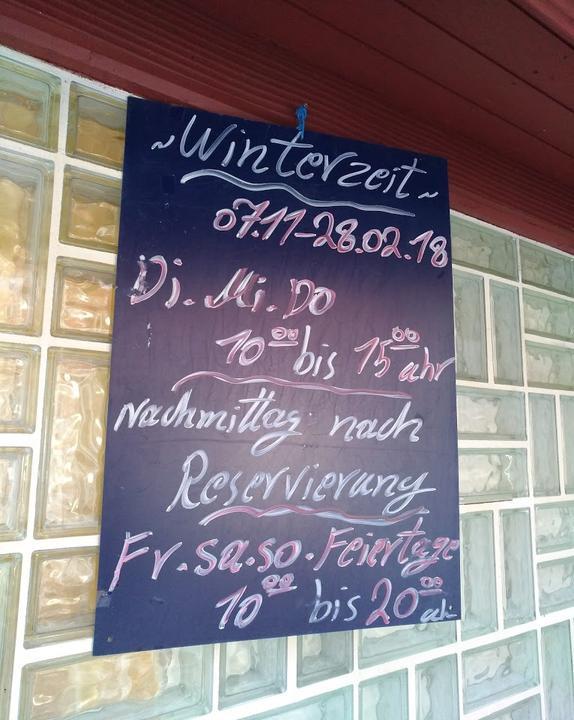 ~Winterzeit~
07.11-28.02.18
Di. Mi. Do
10⁰⁰ bis 15⁰⁰ uhr
Nachmittag nach
Reservierung
Fr. Sa. So. Feiertage
10⁰⁰ bis 20⁰⁰ uhr